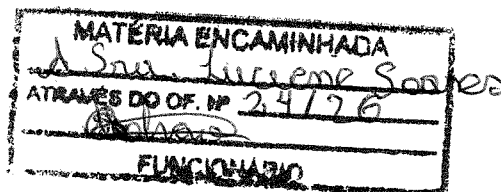 MATÉRIA ENCAMINHADA
A Sra. Luciene Soares
ATRAVÉS DO OF. Nº 24/26
FUNCIONÁRIO